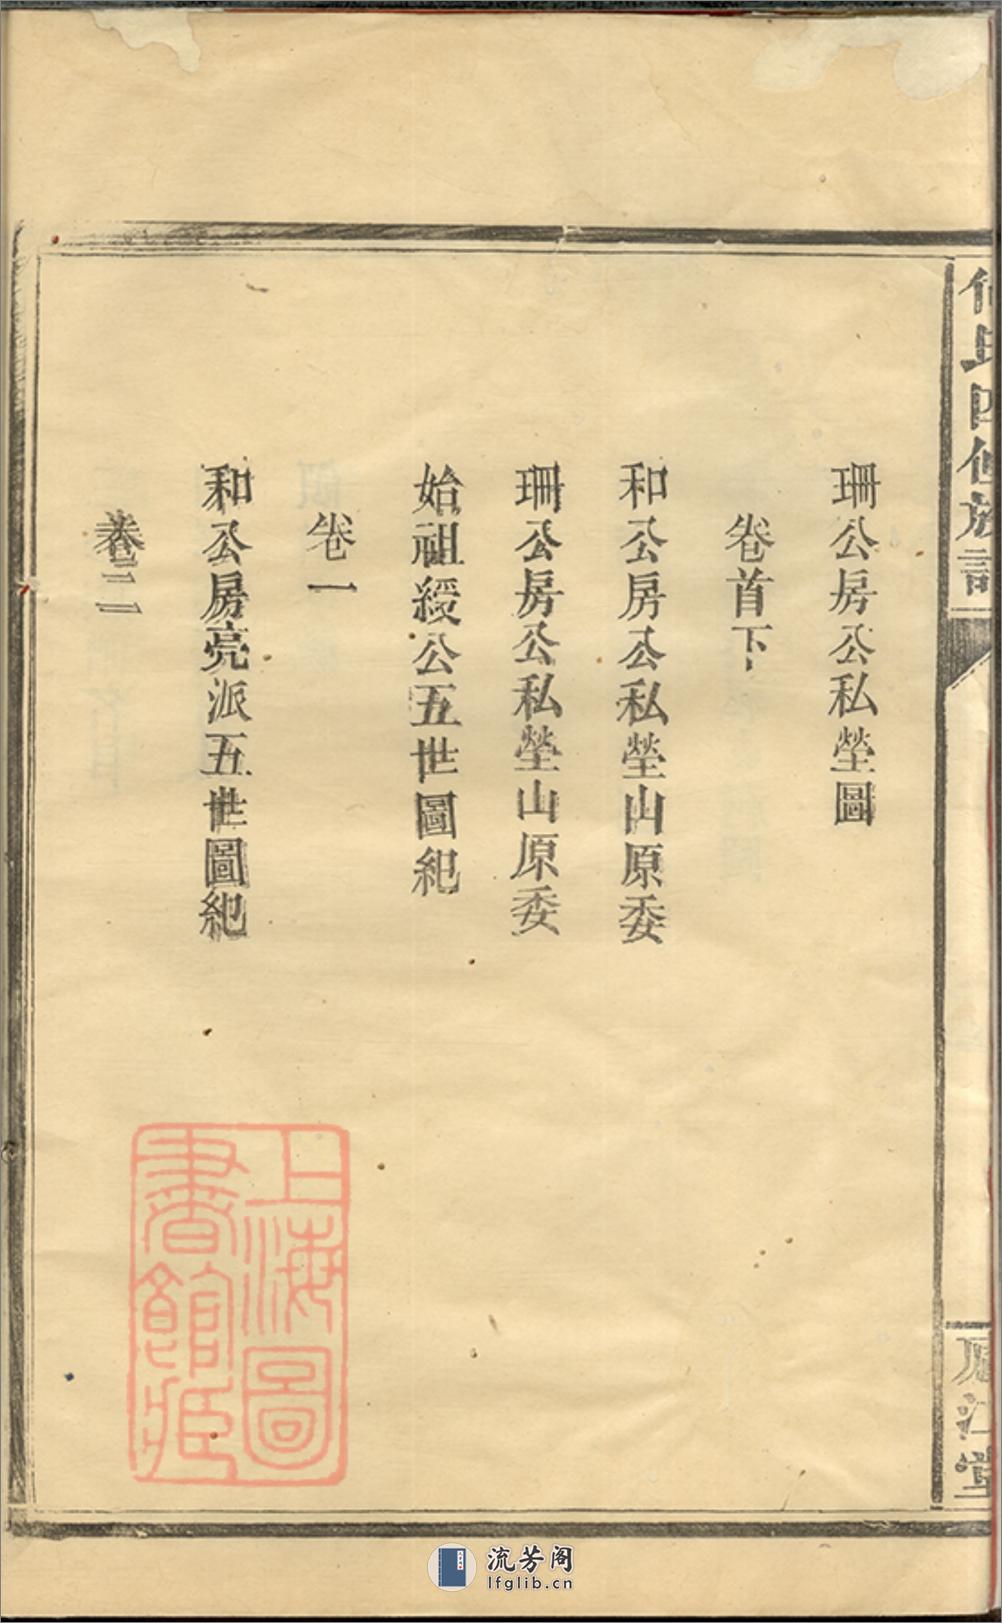 何氏四修族譜
廬江堂
珊公房公私塋圖
卷首下
和公房公私塋山原委
珊公房公私塋山原委
始祖綬公五世圖紀
卷一
和公房亮派五世圖紀
卷二
上海圖書館藏
流芳阁
lfglib.cn